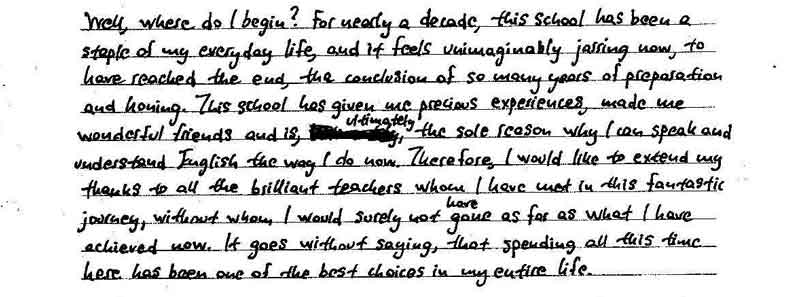 Well, where do I begin? For nearly a decade, this school has been a
staple of my everyday life, and it feels unimaginably jarring now, to
have reached the end, the conclusion of so many years of preparation
and honing. This school has given me precious experiences, made me
wonderful friends and is, ultimately, the sole reason why I can speak and
understand English the way I do now. Therefore, I would like to extend my
thanks to all the brilliant teachers whom I have met in this fantastic
journey, without whom I would surely not have gone as far as what I have
achieved now. It goes without saying, that spending all this time
here has been one of the best choices in my entire life.